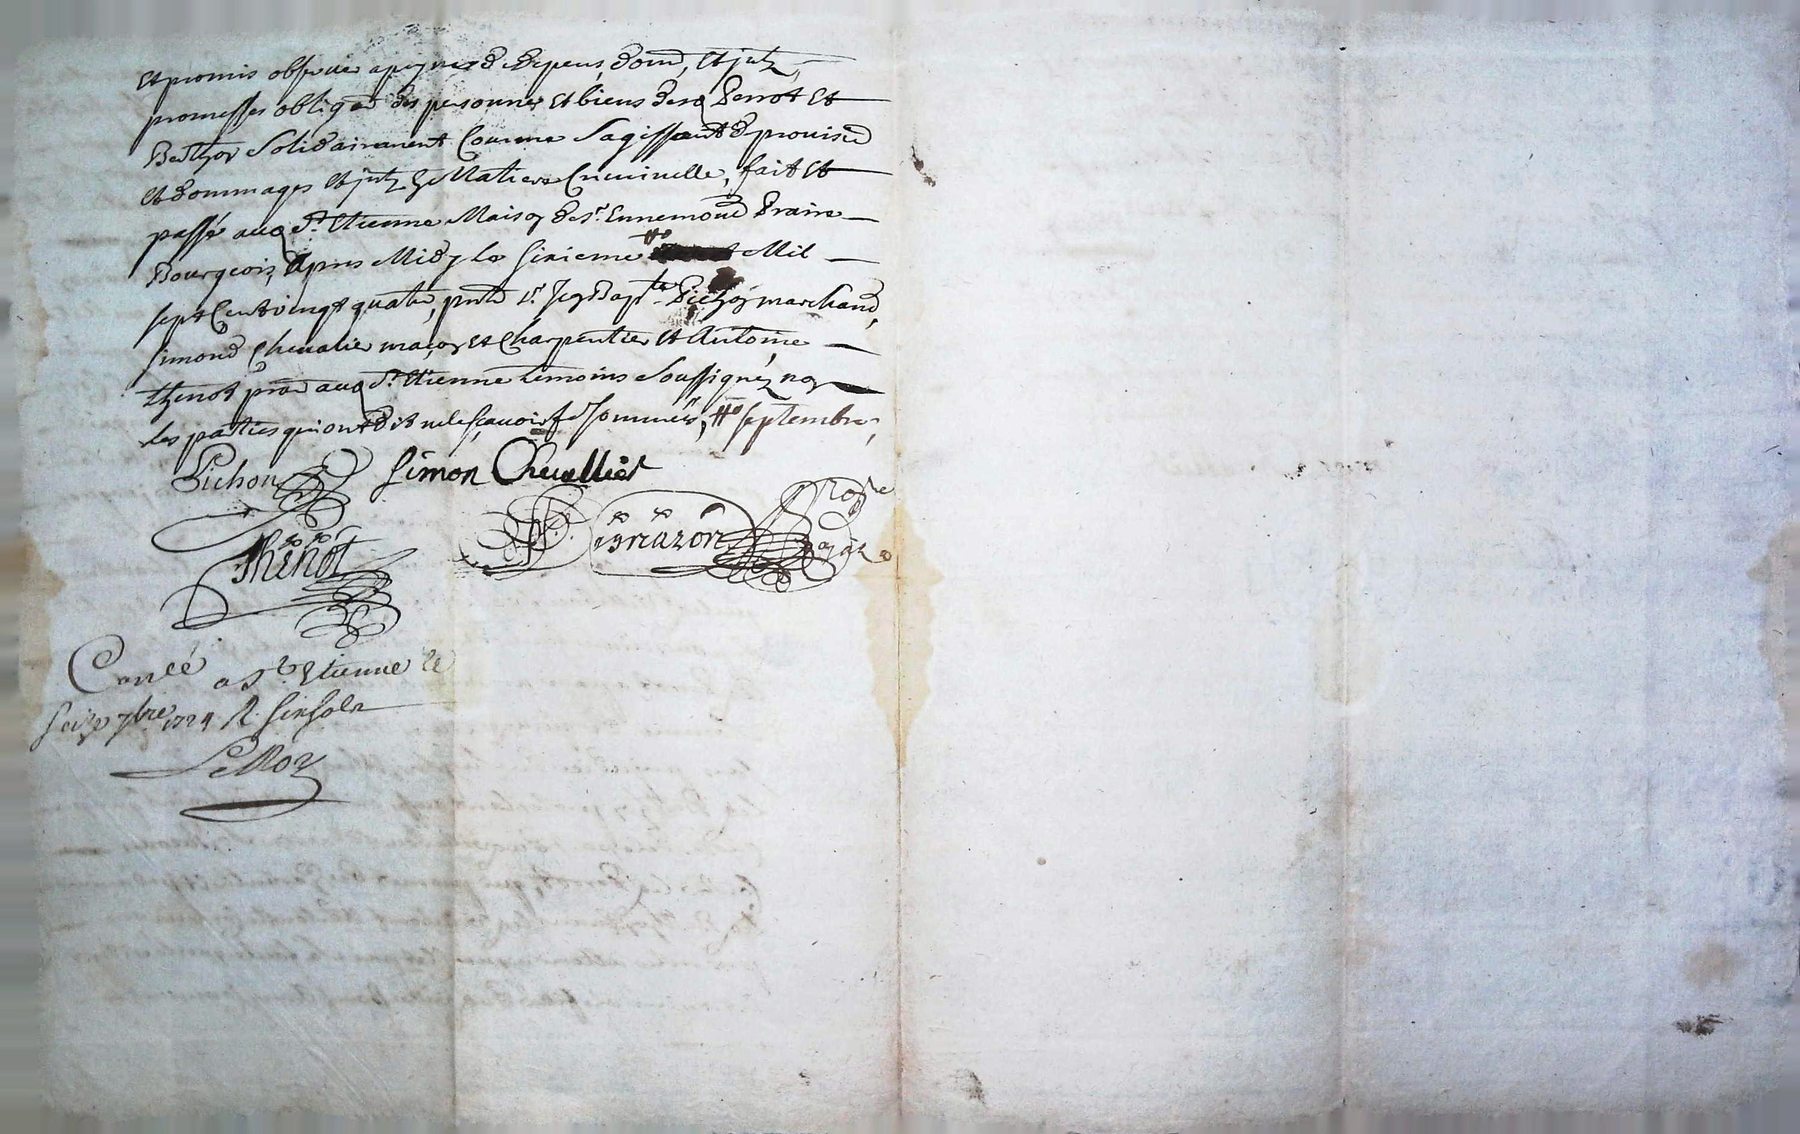 et promis observer a peyne de depens, dom, et jntz,
promesses obligaōn des personnes et biens desq Perrot et
Berthon solidairement comme sagissant de provision
et dommages et jntz de Matiere Criminelle, fait et
passé aud St Etienne Maison de sr Ennemond Praire
Bourgeois, apres Midy le sixieme Mil
sept cent vingt quatre, pnts sr Jean Bapte Pichon marchand,
simond Chevalier maçon et Charpentier et Antoine
thenot prat aud St Etienne temoins soussignéz non
les parties qui ont dit ne le scavoir de ce sommées, # septembre,
Pichon Simon Chevallier
Thenot
Conlé a St Etienne le
seize 7bre 1724 R. six sols
LeRoy